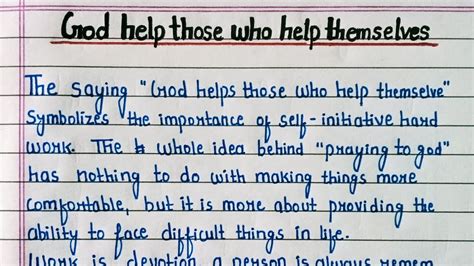 God help those who help themselves
The saying "God helps those who help themselve"
Symbolizes the importance of self-initiative hard
work. The whole idea behind "praying to god"
has nothing to do with making things more
comfortable, but it is more about providing the
ability to face difficult things in life.
Work is devotion a person is always remem